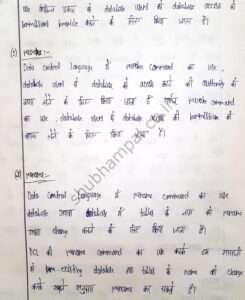 का database users को database access
permission provide करने के लिए किया जाता है।
(1) revoke:-
Data Control Language में revoke command का use
database users से database को access करने की authority को
वापस लेने के लिए किया जाता है revoke command
का use database users से database access की permission को
वापस लेने के लिए किया जाता है।
rename:-
Data Control Language में rename command का use
database तथा database में tables के नाम को rename
तथा change करने के लिए किया जाता है।
DCL की rename command का use करके हम आसानी
से existing database तथा table के name को change
करके अनुसार rename कर सकते हैं।
shubhampal.com